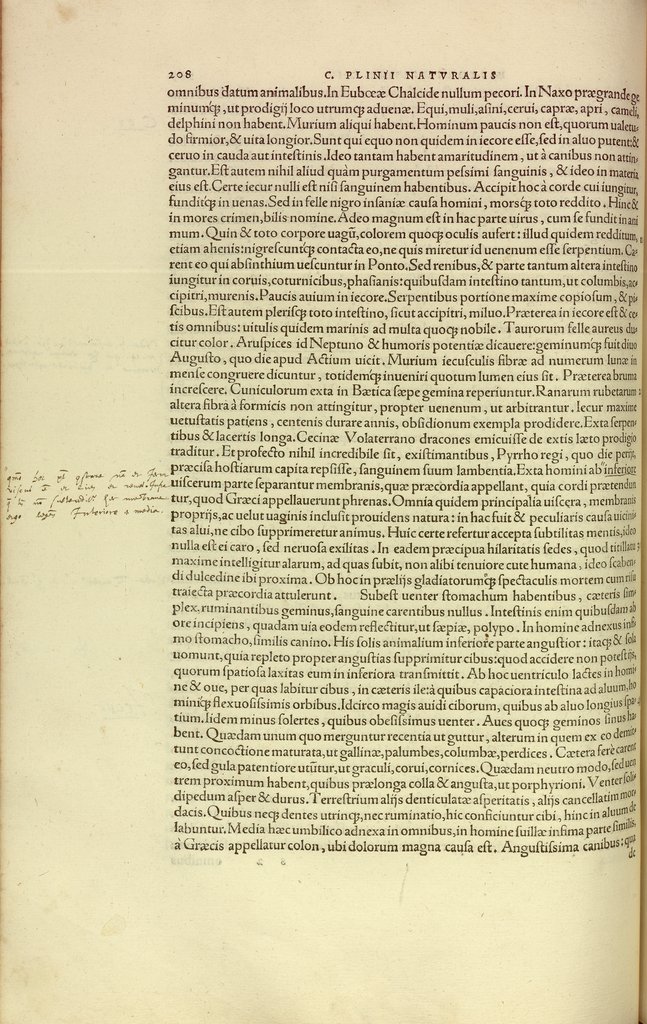 208 C. PLINII NATVRALIS
omnibus datum animalibus.In Eubœæ Chalcide nullum pecori. In Naxo prægrande ge
minumq́;,ut prodigij loco utrumq; aduenæ. Equi,muli,asini,cerui, capræ, apri, cameli,
delphini non habent.Murium aliqui habent.Hominum paucis non est,quorum ualetu
do firmior,& uita longior.Sunt qui equo non quidem in iecore esse,sed in aluo putent:&
ceruo in cauda aut intestinis.Ideo tantam habent amaritudinem, ut à canibus non attin
gantur.Est autem nihil aliud quàm purgamentum pessimi sanguinis, & ideo in materia
eius est.Certe iecur nulli est nisi sanguinem habentibus. Accipit hoc à corde cui iungitur,
funditq; in uenas.Sed in felle nigro insaniæ causa homini, morsq; toto reddito. Hinc &
in mores crimen,bilis nomine.Adeo magnum est in hac parte uirus, cum se fundit in ani
mum. Quin & toto corpore uagũ,colorem quoq; oculis aufert: illud quidem redditum,
etiam ahenis:nigrescuntq; contacta eo,ne quis miretur id uenenum esse serpentium. Ca-
rent eo qui absinthium uescuntur in Ponto.Sed renibus,& parte tantum altera intestino
iungitur in coruis,coturnicibus,phasianis:quibusdam intestino tantum,ut columbis,ac-
cipitri,murenis.Paucis auium in iecore.Serpentibus portione maxime copiosum, & pi
scibus.Est autem plerisq; toto intestino, sicut accipitri, miluo.Præterea in iecore est & ce
tis omnibus: uitulis quidem marinis ad multa quoq; nobile. Taurorum felle aureus du
citur color. Aruspices id Neptuno & humoris potentiæ dicauere:geminumq; fuit diuo
Augusto, quo die apud Actium uicit. Murium iecusculis fibræ ad numerum lunæ in
mense congruere dicuntur, totidemq; inueniri quotum lumen eius sit. Præterea bruma
increscere. Cuniculorum exta in Bætica sæpe gemina reperiuntur.Ranarum rubetarum
altera fibra à formicis non attingitur, propter uenenum, ut arbitrantur. Iecur maxime
uetustatis patiens, centenis durare annis, obsidionum exempla prodidere.Exta serpen-
tibus & lacertis longa.Cecinæ Volaterrano dracones emicuisse de extis læto prodigio
traditur. Et profecto nihil incredibile sit, existimantibus, Pyrrho regi, quo die perijt,
præcisa hostiarum capita repsisse, sanguinem suum lambentia.Exta homini ab inferiore
uiscerum parte separantur membranis, quæ præcordia appellant, quia cordi prætendun
tur,quod Græci appellauerunt phrenas.Omnia quidem principalia uiscera, membranis
proprijs,ac uelut uaginis inclusit prouidens natura: in hac fuit & peculiaris causa uicini-
tas alui,ne cibo supprimeretur animus. Huic certe refertur accepta subtilitas mentis,ideo
nulla est ei caro, sed neruosa exilitas. In eadem præcipua hilaritatis sedes, quod titillatu
maxime intelligitur alarum, ad quas subit, non alibi tenuiore cute humana, ideo scaben-
di dulcedine ibi proxima. Ob hoc in prælijs gladiatorumq; spectaculis mortem cum risu
traiecta præcordia attulerunt. Subest uenter stomachum habentibus, cæteris sim-
plex,ruminantibus geminus,sanguine carentibus nullus. Intestinis enim quibusdam ab
ore incipiens, quadam uia eodem reflectitur,ut sæpiæ, polypo. In homine adnexus infi-
mo stomacho,similis canino. His solis animalium inferiore parte angustior: itaq; & sola
uomunt,quia repleto propter angustias supprimitur cibus:quod accidere non potest ijs,
quorum spatiosa laxitas eum in inferiora transmittit. Ab hoc uentriculo lactes in homi-
ne & oue, per quas labitur cibus, in cæteris ile:à quibus capaciora intestina ad aluum,ho
miniq; flexuosissimis orbibus.Idcirco magis auidi ciborum, quibus ab aluo longius spa-
tium.Iidem minus solertes, quibus obesissimus uenter. Aues quoq; geminos sinus ha-
bent. Quædam unum quo merguntur recentia ut guttur, alterum in quem ex eo demit-
tunt concoctione maturata,ut gallinæ,palumbes,columbæ,perdices. Cætera fere carent
eo,sed gula patentiore utũtur,ut graculi,corui,cornices. Quædam neutro modo,sed uen
trem proximum habent,quibus prælonga colla & angusta,ut porphyrioni. Venter soli-
dipedum asper & durus. Terrestrium alijs denticulatæ asperitatis, alijs cancellatim mor-
dacis. Quibus neq; dentes utrinq;,nec ruminatio,hic conficiuntur cibi, hinc in aluum de
labuntur. Media hæc umbilico adnexa in omnibus,in homine suillæ infima parte similis,
à Græcis appellatur colon, ubi dolorum magna causa est. Angustissima canibus: qua
de